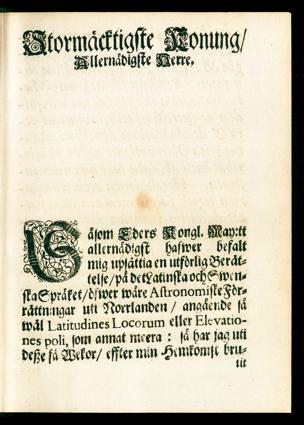 Stormäcktigste Konung/
Allernådigste Herre.
Såsom Eders Kongl. May:tt
allernådigst hafwer befalt
mig upsättia en utförlig Berät-
telse/ på det Latinska och Swen-
ska Språket/ öfwer wåre Astronomiske För-
rättningar uti Norrlanden / angående så
wäl Latitudines Locorum eller Elevatio-
nes poli, som annat meera : så har jag uti
deße få Wekor/ effter min Hemkomst bru-
tit